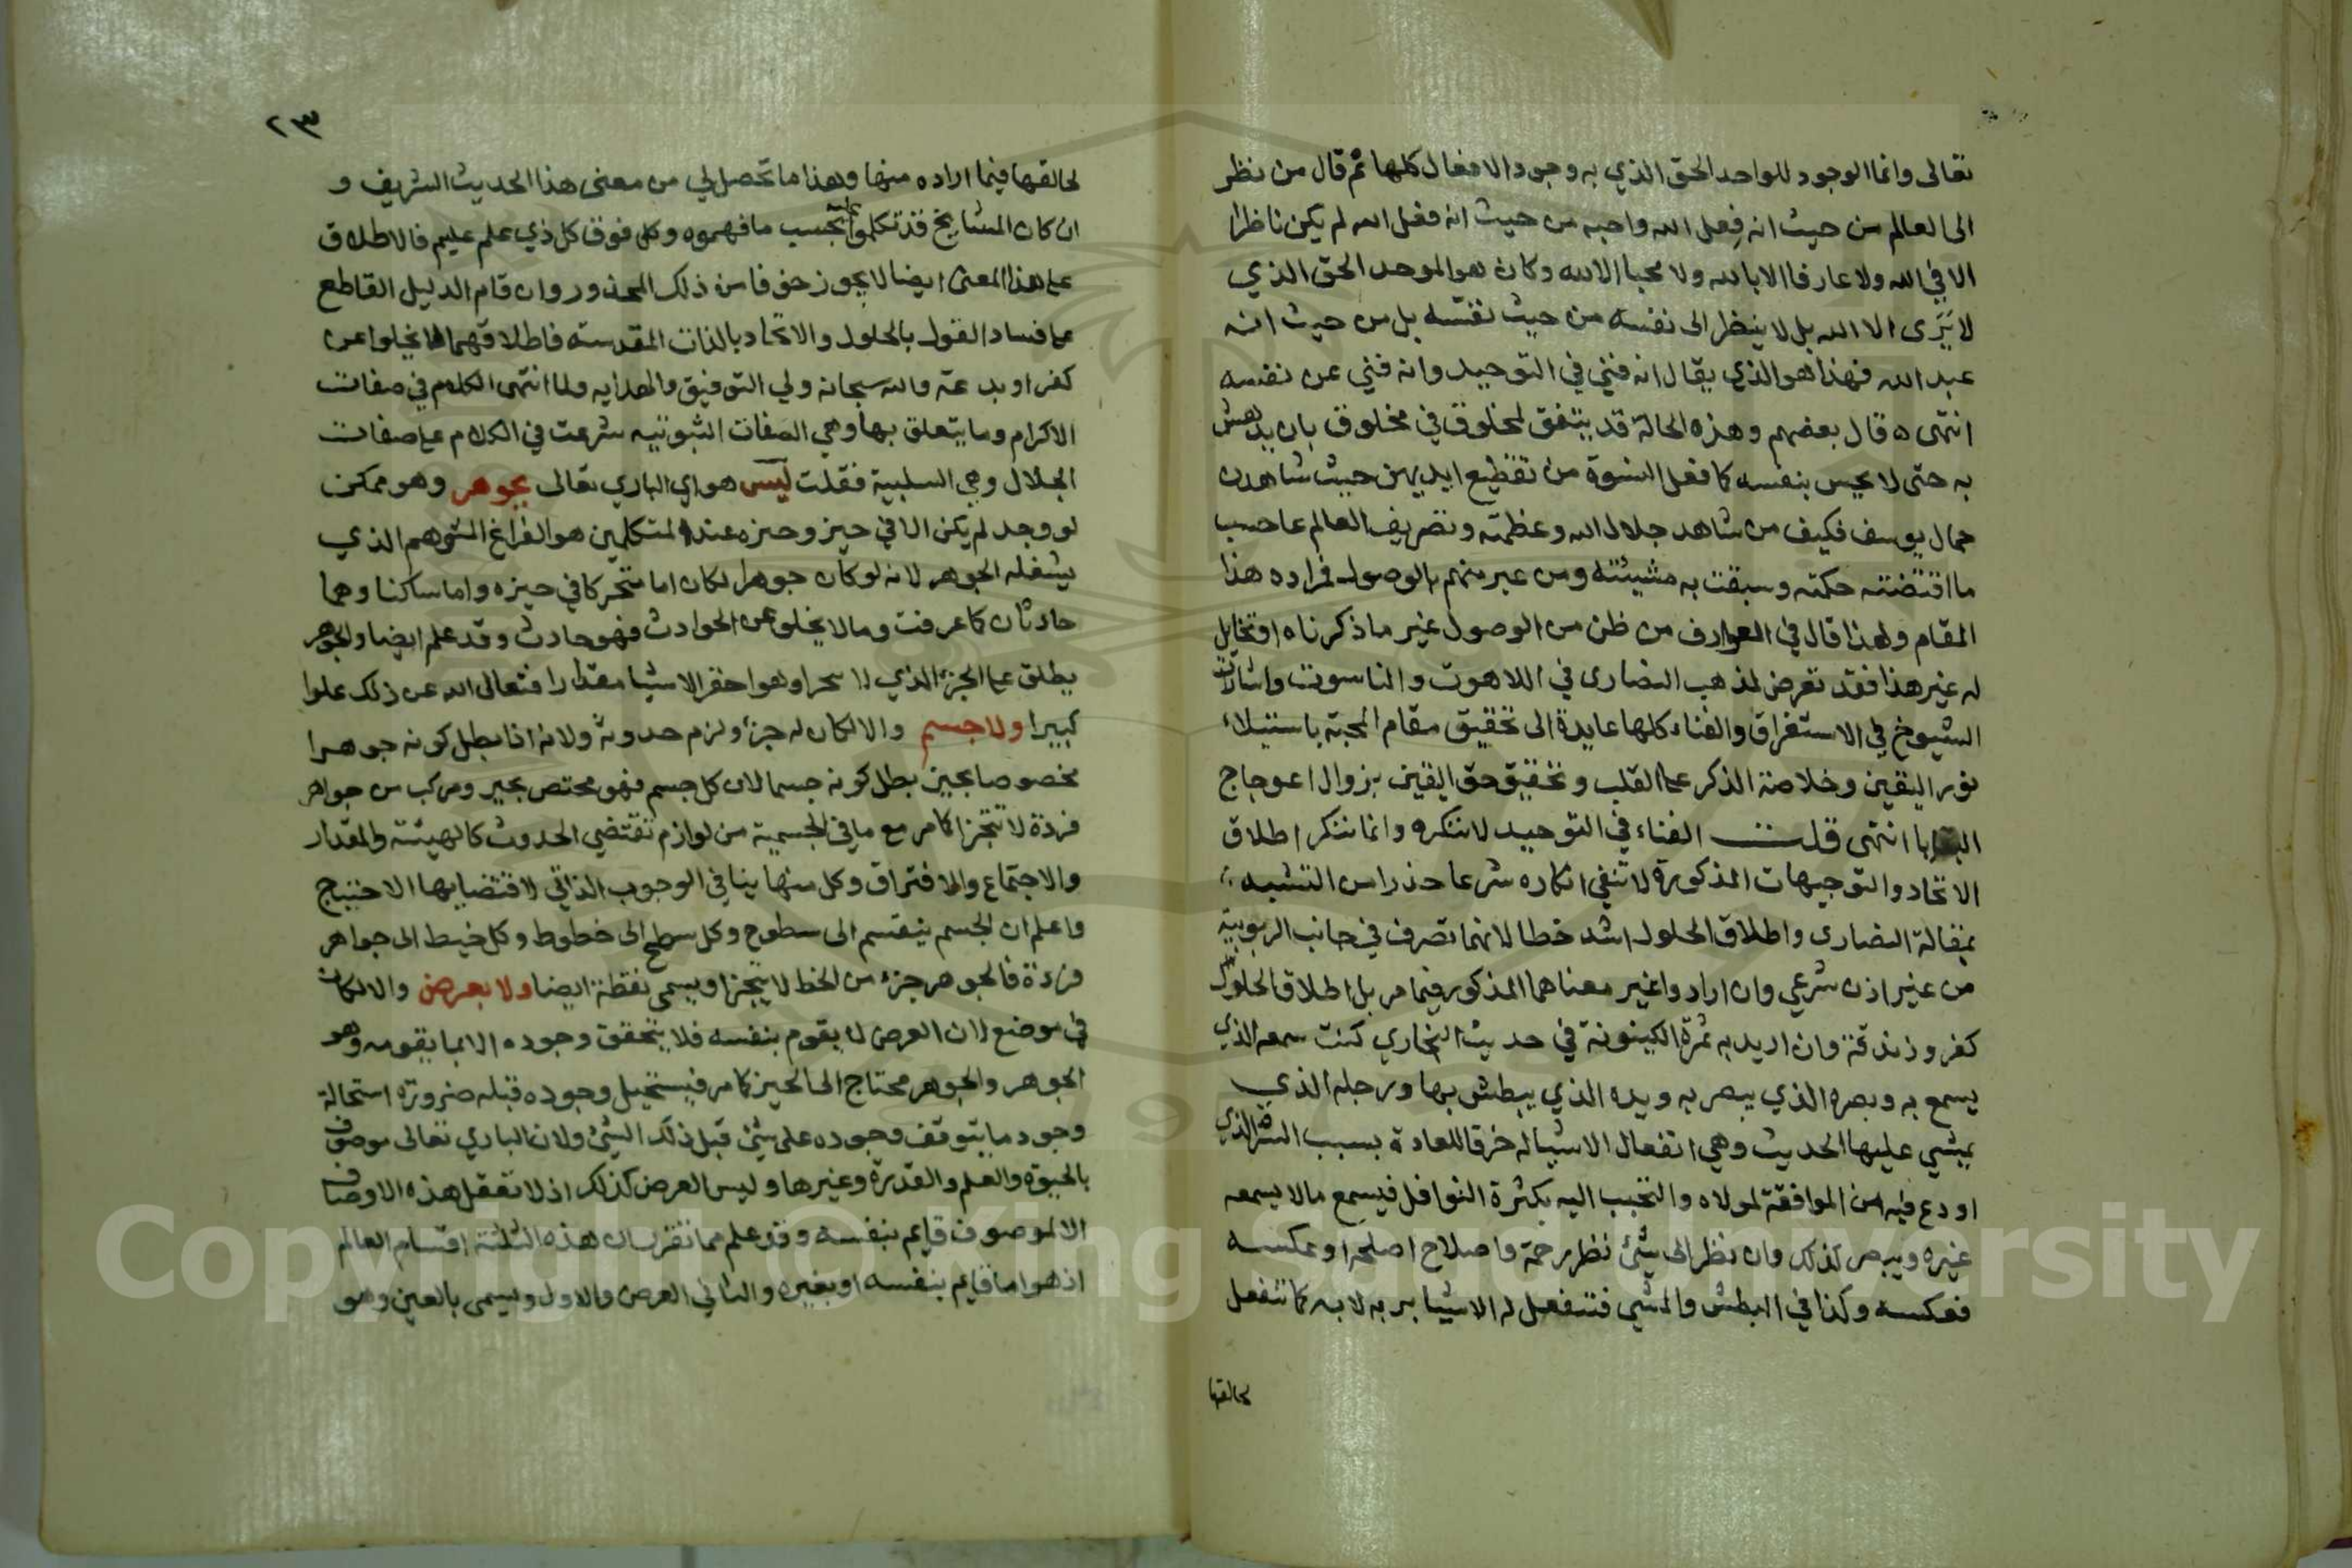 تعالى وانما الوجود للواحد الحق الذي به وجود الافعال كلها ثم قال من نظر
الى العالم من حيث انه فعل الله واحبه من حيث انه فعل الله لم يكن ناظرا
الا في الله ولا عارفا الا بالله ولا محبا الا لله وكان هو الموحد الحق الذي
لا يرى الا الله بل لا ينظر الى نفسه من حيث نفسه بل من حيث انه
عبد الله فهذا هو الذي يقال انه فني في التوحيد وانه فني عن نفسه
انتهى ه قال بعضهم وهذه الحالة قد يتفق لمخلوق في مخلوق بان يدهش
به حتى لا يحس بنفسه كما فعل النسوة من تقطيع ايديهن حيث شاهدن
جمال يوسف فكيف من شاهد جلال الله وعظمته وتصريف العالم عاحسب
ما اقتضته حكمته وسبقت به مشيئته ومن عبر منهم بالوصول فمراده هذا
المقام ولهذا قال في العوارف من ظن من الوصول غير ما ذكرناه او تخايل
له غير هذا فقد تعرض لمذهب النصارى في اللاهوت والناسوت واشارات
الشيوخ في الاستغراق والفناء كلها عايدة الى تحقيق مقام المحبة باستيلاء
نور اليقين وخلاصة الذكر عا القلب وتحقيق حق اليقين بزوال اعوجاج
البقايا انتهى قلت الفناء في التوحيد لا ننكره وانما ننكر اطلاق
الاتحاد والتوجيهات المذكورة لا تنفي انكاره شرعا حذرا من التشبه
بمقالة النصارى واطلاق الحلول اشد خطا لانهما تصرف في جانب الربوبية
من غير اذن شرعي وان ارادوا غير معناهما المذكور فيما مر بل اطلاق الحلول
كفر وزندقة وان اريد به ثمرة الكينونة في حديث البخاري كنت سمعه الذي
يسمع به وبصره الذي يبصر به ويده الذي يبطش بها ورجله الذي
يمشي عليها الحديث وهي انفعال الاشيا له خرقا للعادة بسبب السر الذي
اودع فيه من الموافقة لمولاه والتحبب اليه بكثرة النوافل فيسمع مالا يسمعه
غيره ويبصر كذلك وان نظر الى شئ نظر رحمة واصلاح اصلحه او عكسه
فعكسه وكذا في البطش والمشي فتنفعل له الاشيا بربه لا به كما تنفعل
لخالقها
٢٣
لخالقها فيما اراده منها وهذا ما تحصل لي من معنى هذا الحديث الشريف و
ان كان المشايخ قد تكلموا عليه بحسب ما فهموه وكل فوق كل ذي علم عليم فالاطلاق
عا هذا المعنى ايضا لا يجوز خوفا من ذلك المحذور وان قام الدليل القاطع
عا فساد القول بالحلول والاتحاد بالذات المقدسة فاطلاقهما لا يخلوا عن
كفر او بدعة والله سبحانه ولي التوفيق والهدايه ولما انتهى الكلام في صفات
الاكرام وما يتعلق بها وهي الصفات الثبوتيه شرعت في الكلام عا صفات
الجلال وهي السلبية فقلت ليس هو اي الباري تعالى بجوهر وهو ممكن
لو وجد لم يكن الا في حيز وحيزه عند المتكلمين هو الفراغ المتوهم الذي
يشغله الجوهر لانه لو كان جوهرا لكان اما متحركا في حيزه واما ساكنا وهما
حادثان كما عرفت وما لا يخلو عن الحوادث فهو حادث وقد علم ايضا والجوهر
يطلق عا الجزء الذي لا يتجزا وهو احقر الاشيا مقدارا فتعالى الله عن ذلك علوا
كبيرا ولا جسم والا لكان له جزء ولزم حدوثه ولانه اذا بطل كونه جوهرا
مخصوصا بحيز بطل كونه جسما لان كل جسم فهو مختص بحيز ومركب من جواهر
فردة لا تتجزا كما مر مع ما في الجسمية من لوازم تقتضي الحدوث كالهيئة والمقدار
والاجتماع والافتراق وكل منها ينافي الوجوب الذاتي لاقتضايها الاحتياج
واعلم ان الجسم ينقسم الى سطوح وكل سطح الى خطوط وكل خيط الى جواهر
فردة فالجوهر جزء من الخط لا يتجزا ويسمى نقطة ايضا ولا بعرض والا لكان
في موضع لان العرض لا يقوم بنفسه فلا يتحقق وجوده الا بما يقومه وهو
الجوهر والجوهر محتاج الى الحيز كما مر فيستحيل وجوده قبله ضرورة استحالة
وجود ما يتوقف وجوده على شئ قبل ذلك الشئ ولان الباري تعالى موصوف
بالحيوة والعلم والقدرة وغيرها وليس العرض كذلك اذ لا تعقل هذه الاوصاف
الا لموصوف قايم بنفسه وقد علم مما تقرر ان هذه الثلثة اقسام العالم
اذ هو اما قايم بنفسه او بغيره والثاني العرض والاول ويسمى بالعين وهو
Copyright © King Saud University